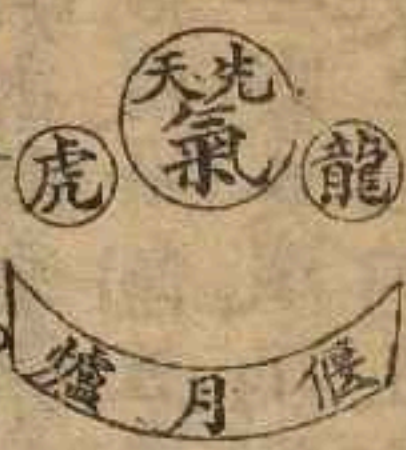 先天
氣
龍
虎
偃月爐